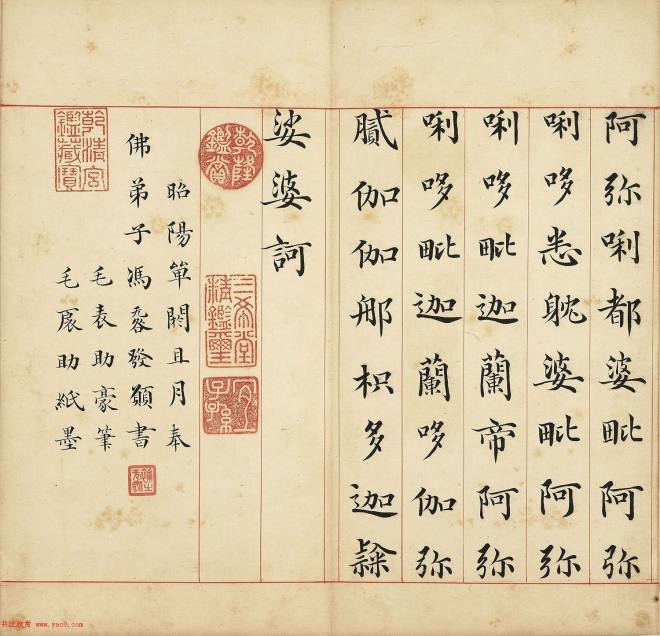 阿弥唎都婆毗阿弥
唎哆悉耽婆毗阿弥
唎哆毗迦蘭帝阿弥
唎哆毗迦蘭哆伽弥
膩伽伽那枳多迦隸
娑婆訶
乾隆鑑賞
三希堂精鑑璽
宜子孫
昭陽單閼且月奉
佛弟子馮發願書
毛表助豪筆
毛扆助紙墨
乾清宮鑑藏寶
书法欣赏 www.yac8.com